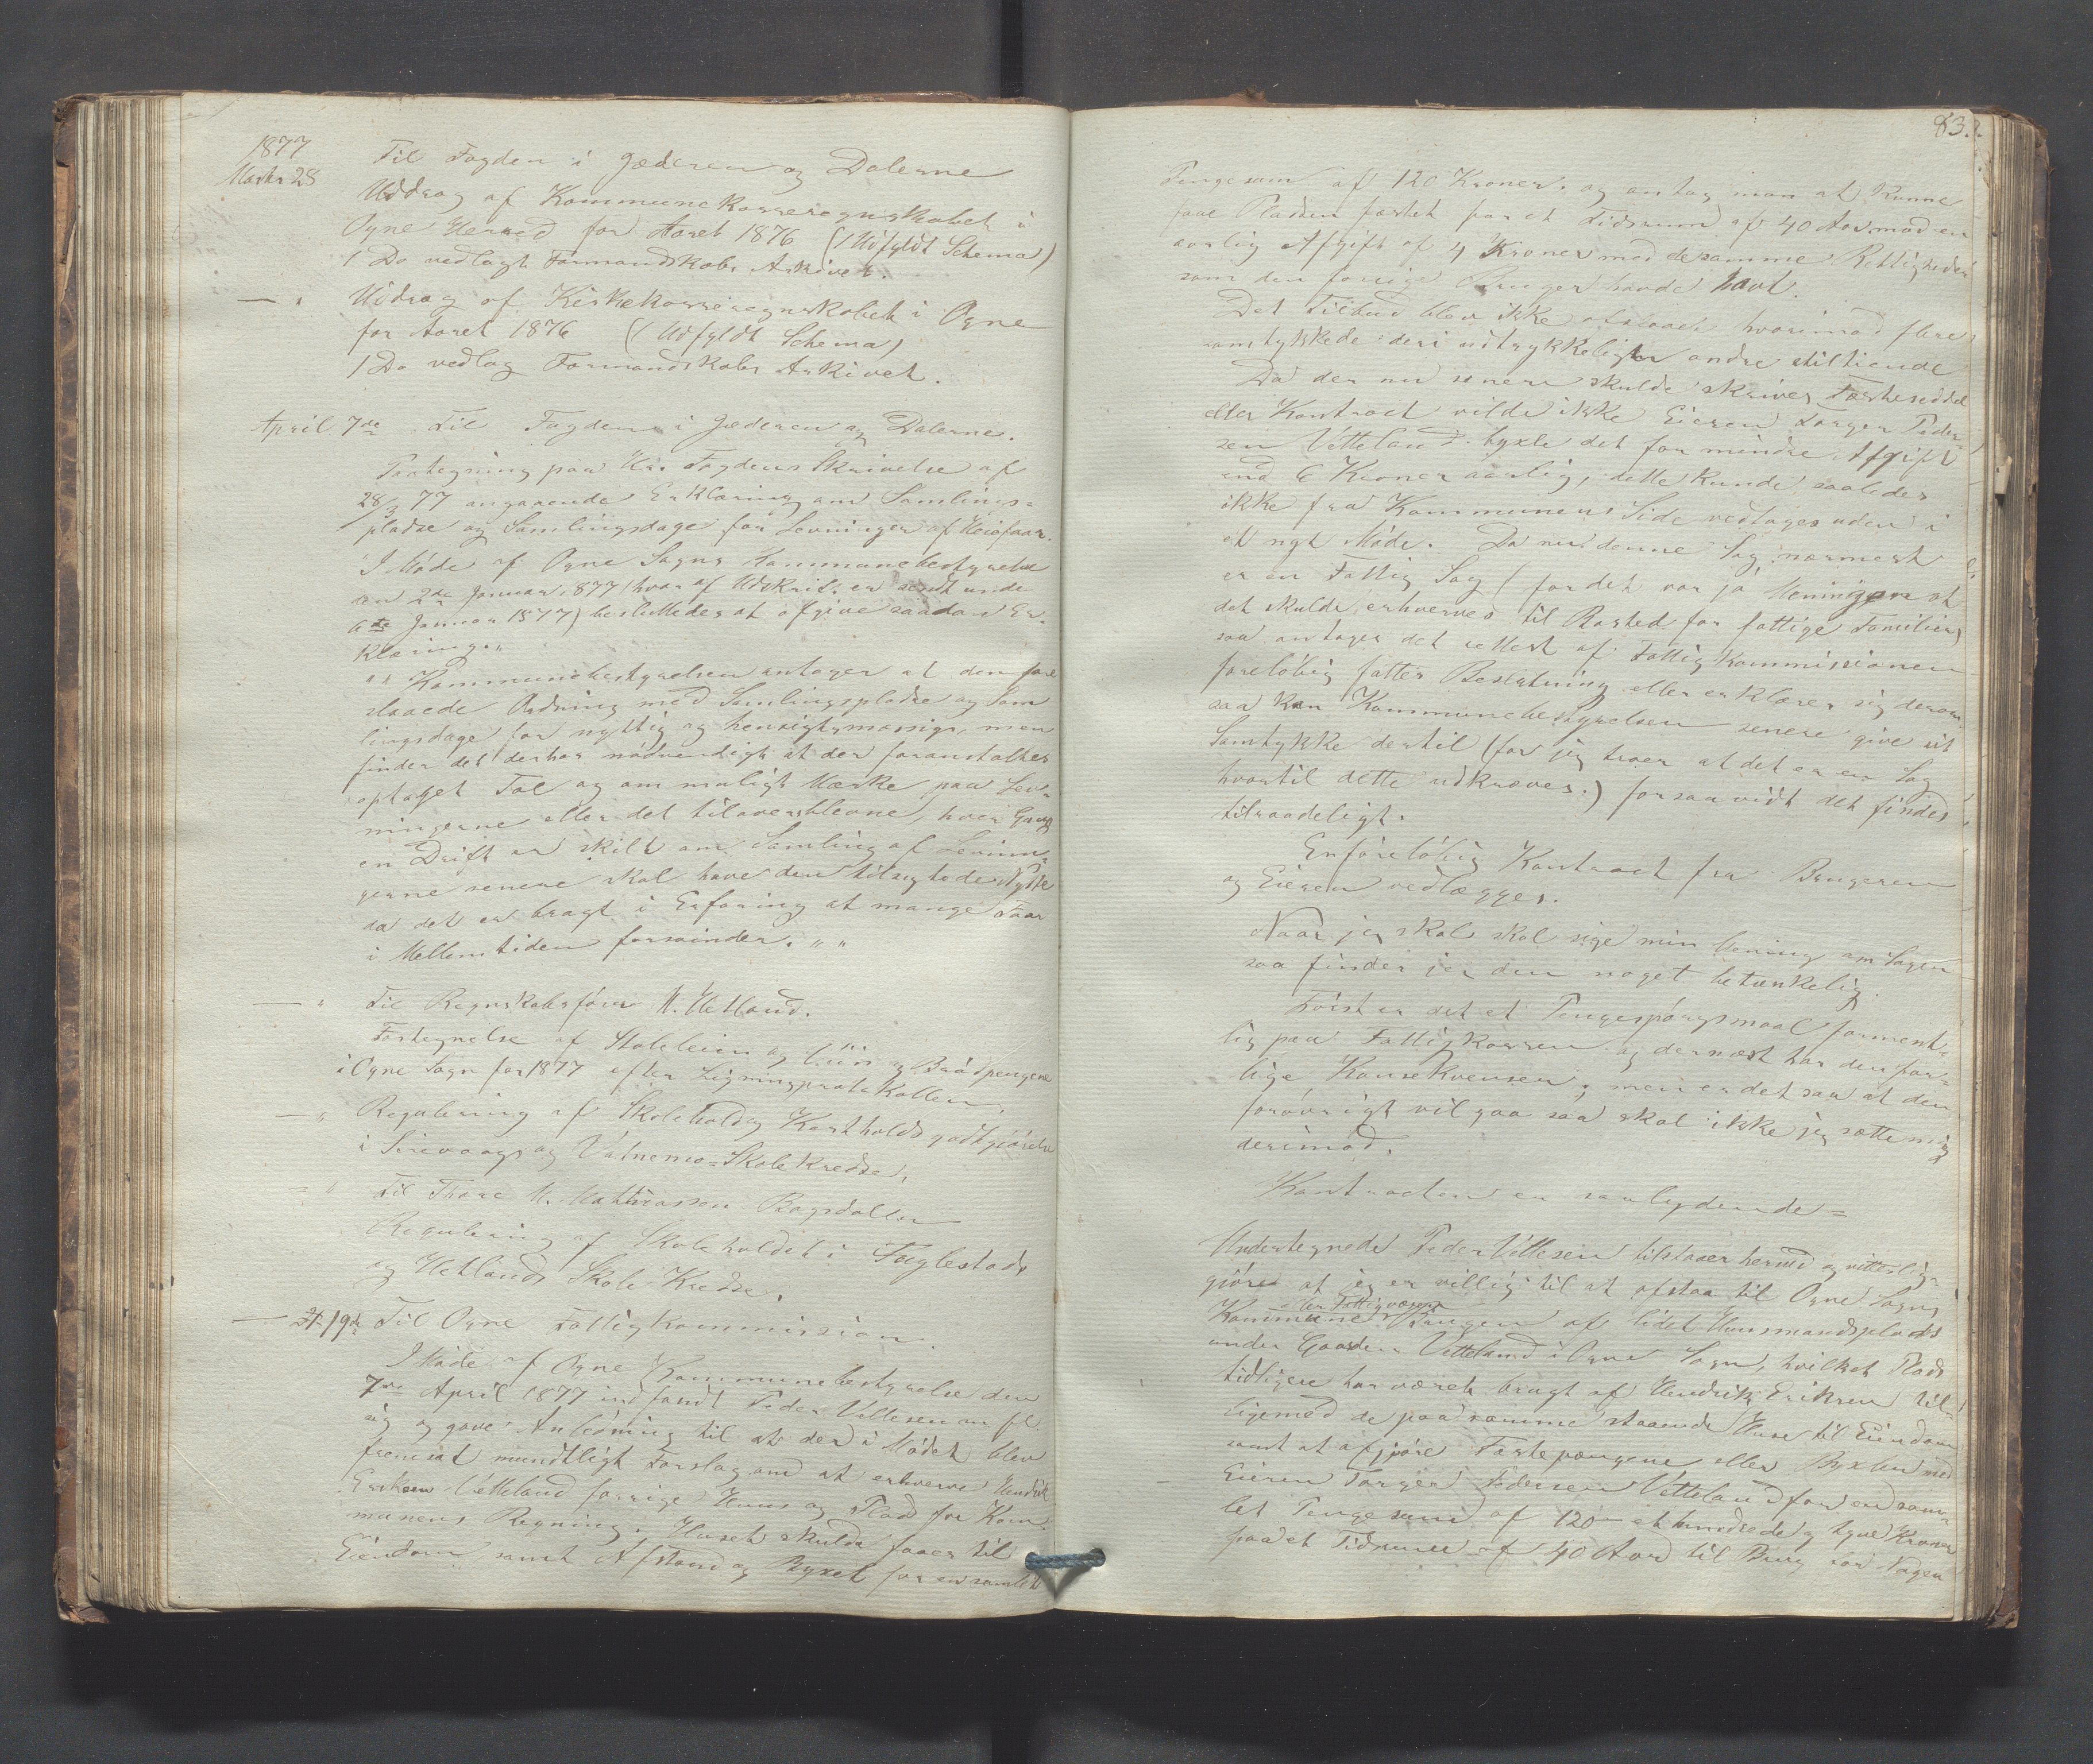 1877
Marts 28
Til Fogden i Jæderen og Dalerne
Uddrag af Kommunekasseregnskabet i
Ogne Herred for Aaret 1876 (1 Udfyldt Schema)
1 Do vedlagt Formandskabs Arkivet.
— " Uddrag af Kirkekasseregnskabet i Ogne
for Aaret 1876 (1 Udfyldt Schema)
1 Do vedlag Formandskabs Arkivet.
April 7de Til Fogden i Jæderen og Dalerne.
Paategning paa Hr. Fogdens Skrivelse af
28/3 77 angaaende Erklæring om Samlings-
pladse og Samlingsdage for Levninger af Heiefaar.
"I Møde af Ogne Sogns Kommunebestyrelse
den 2de Januar 1877 (hvor af Udskrift er sendt unde
6te Januar 1877) besluttedes at afgive saadan Er-
klæring."
"" Kommunebestyrelsen antager at den fore
slaaede Ordning med Samlingspladse og Sam
lingsdage for nyttig og hensigtsmæssig, men
finder det derhos nødvendigt at der foranstaltes
optaget Tal og om muligt Mærke paa Lev-
ningerne eller det tiloversblevne, hver Gang
en Drift er skilt om Samling af Levnin-
gerne senere skal have den tilsigtede Nytte
da det er bragt i Erfaring at mange Faar
i Mellemtiden forsvinder. ""
— " Til Regnskabsfører M. Hetland.
Fortegnelse af Skoleleien og Liin og Brødpengene
i Ogne Sogn for 1877 efter Ligningsprotokollen.
— " Regulering af Skolehold og Kostholdsgodtgjørelse
i Sirevaags og Vatnemo-Skolekredse.
— " Til Thore M. Mathiassen Bogsdallen
Regulering af Skoleholdet i Fuglestads
og Hetlands Skole Kredse.
— 19de Til Ogne Fattigkommission
I Møde af Ogne Kommunebestyrelse den
7de April 1877 indfandt Peder Villesen m fl.
sig og gave Anledning til at der i Mødet blev
fremsat mundtligt Forslag om at erhverve Hendrik
Eriksen Vetteland forrige Huus og Plads for Kom-
munens Regning. Huset skulde faaes til
Eiendom samt Afstaa og Byxel for en samlet
83.
Pengesum af 120 Kroner. og antog man at kunne
faae Pladsen fæstet for et Tidsrum af 40 Aar mod en
aarlig Afgift af 4 Kroner med de samme Rettigheder
som den forrige Bruger havde havt.
Det Tilbud blev ikke afslaaet hvorimod flere
samtykkede deri udtrykkeligen andre stiltiende
Da der nu senere skulde skrives Fæsteseddel
eller Kontract vilde ikke Eieren Torger Peder-
sen Vetteland byxle det for mindre Afgift
end 6 Kroner aarlig, dette kunde saaledes
ikke fra Kommunens Side vedtages uden i
et nyt Møde. Da nu denne Sag nærmest
er en Fattig Sag (for det var jo Meningen at
det skulde erhverves til Bosted for fattige Familier)
saa antages det rettest af Fattigkommissionen
foreløbig fatter Beslutning eller erklærer sig derom
saa kan Kommunebestyrelsen senere give sit
Samtykke dertil (for jeg troer at det er en Sag
hvortil dette udkræves.) forsaavidt det findes
tilraadeligt.
En foreløbig Kontract fra Brugeren
og Eieren vedlægges.
Naar jeg skal skal sige min Mening om Sagen
saa finder jeg den noget betænkelig.
Først er det et Pengespørgsmaal forment-
lig paa Fattigkassen og dernæst har den far-
lige Konsekvenser, men er det saa at den
forøvrigt vil gaa saa skal ikke jeg sætte mig
derimod.
Kontracten er saalydende =
Undertegnede Peder Villesen tilstaaer herved og vitterlig-
gjøre at jeg er villig til at afstaa til Ogne Sogns
Kommune eller Fattigvæsen Brugen af lidet Huusmandsplads
under Gaarden Vetteland i Ogne Sogn, hvilket Plads
tidligere har været brugt af Hendrik Eriksen til-
ligemed de paa samme staaende Huse til Eiendom
samt at afgjøre Fæstepengene eller Byxlen med
Eieren Torger Pedersen Vetteland for en sam-
let Pengesum af 120 — et hundrede og tyve Kroner
paa et Tidsrum af 40 Aar til Brug for Nogen